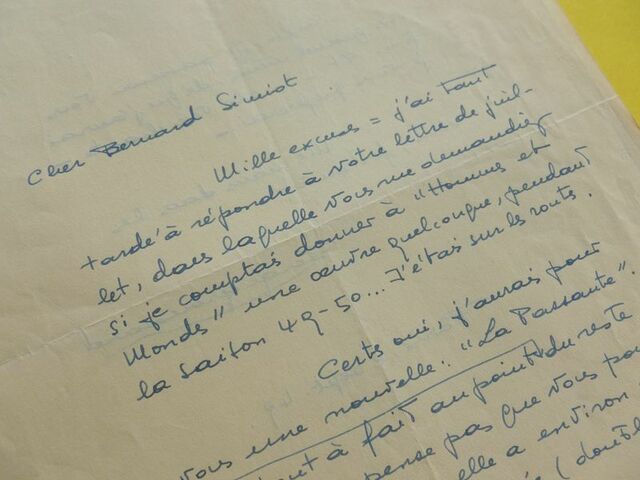 Cher Bernard Simiot
Mille excuses = j'ai tant
tardé à répondre à votre lettre de juil-
let, dans laquelle vous me demandiez
si je comptais donner à "Hommes et
Mondes" une œuvre quelconque, pendant
la saison 49-50... J'étais sur les routes.
Certes oui, j'aurais pour
vous une nouvelle: "La Passante".
tout à fait au point du reste
pense pas que vous pou
elle a environ
(doubl